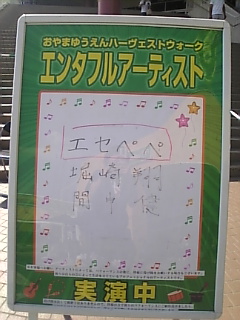 おやまゆうえんハーヴェストウォーク
エンタフルアーティスト
エセペペ
堀崎 翔
間中 俊
実演中